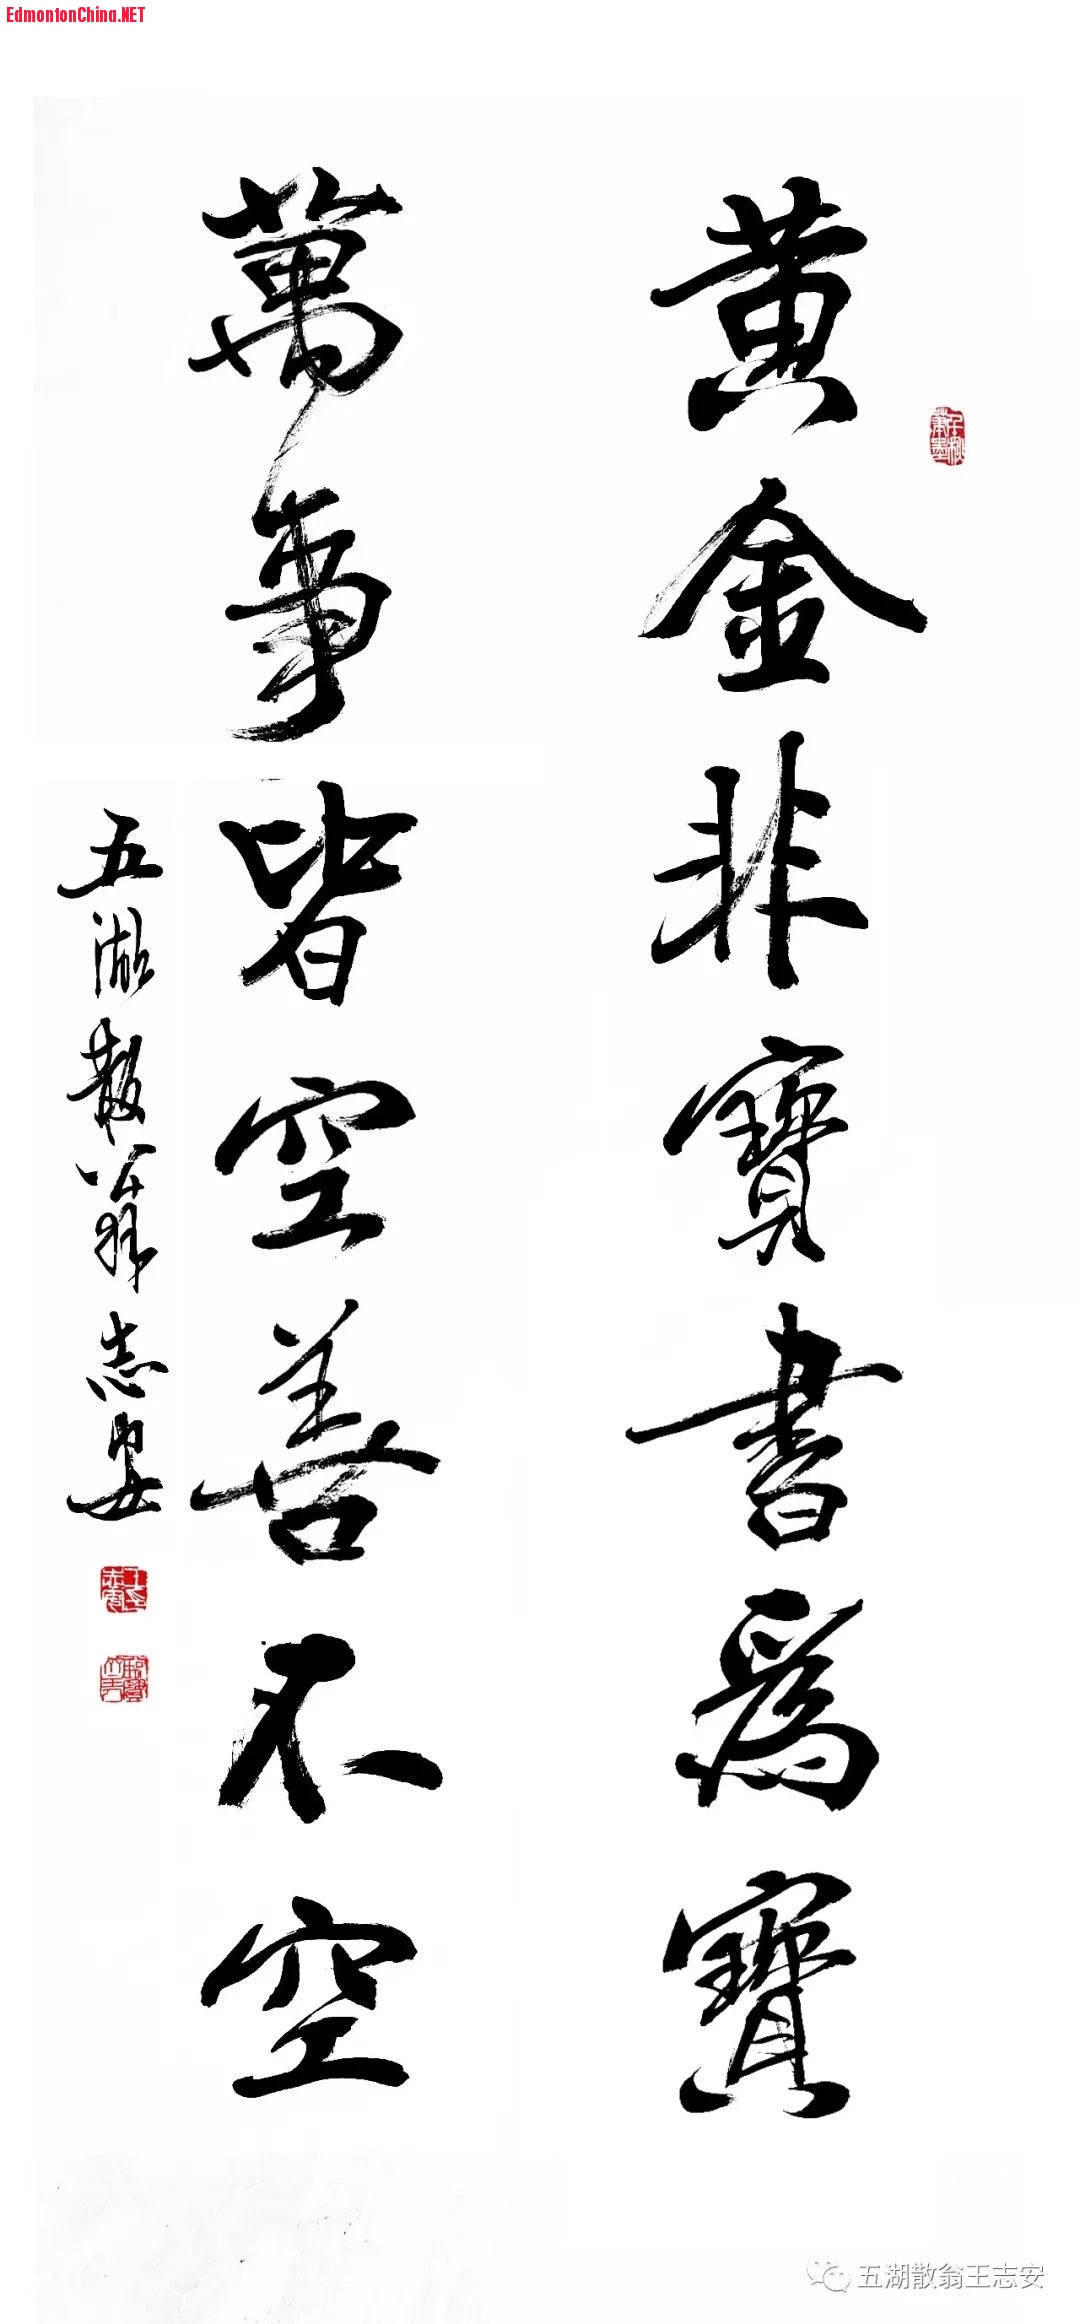 EdmontonChina.NET
黄金非寶書爲寶
萬事皆空善不空
五湖散翁志安
五湖散翁王志安